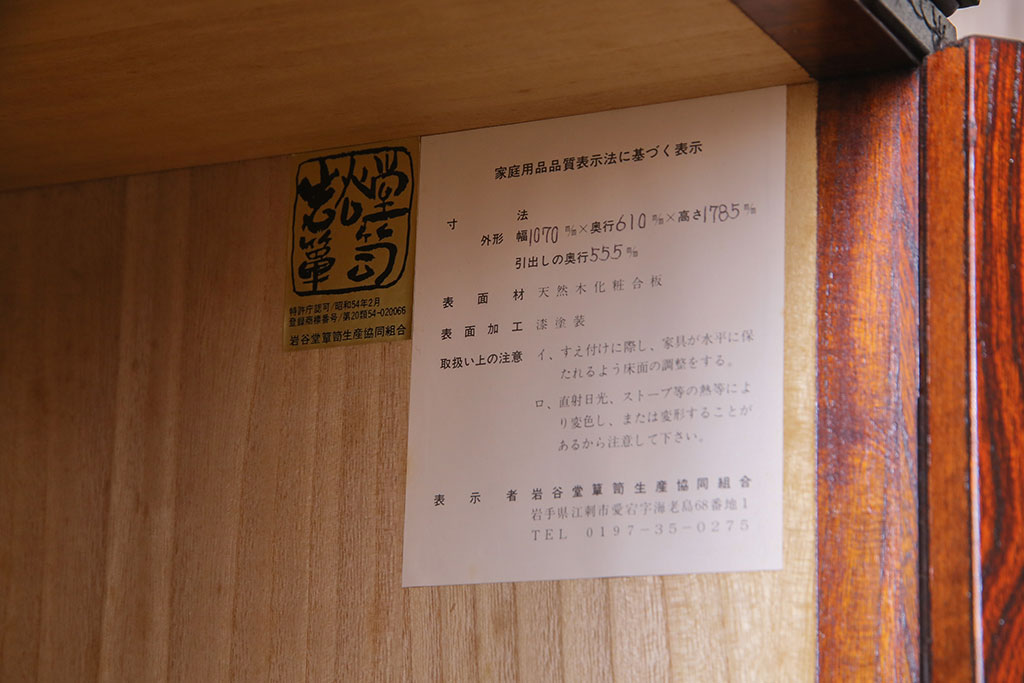 岩谷堂簞笥
特許庁認可/昭和54年2月
登録商標番号/第20類54-020066
岩谷堂簞笥生産協同組合
家庭用品品質表示法に基づく表示
寸法
外形 幅1070㎜×奥行610㎜×高さ1785㎜
引出しの奥行555㎜
表面材 天然木化粧合板
表面加工 漆塗装
取扱い上の注意 イ、すえ付けに際し、家具が水平に保
たれるよう床面の調整をする。
ロ、直射日光、ストーブ等の熱等によ
り変色し、または変形することが
あるから注意して下さい。
表示者 岩谷堂簞笥生産協同組合
岩手県江刺市愛宕字海老島68番地1
TEL 0197-35-0275